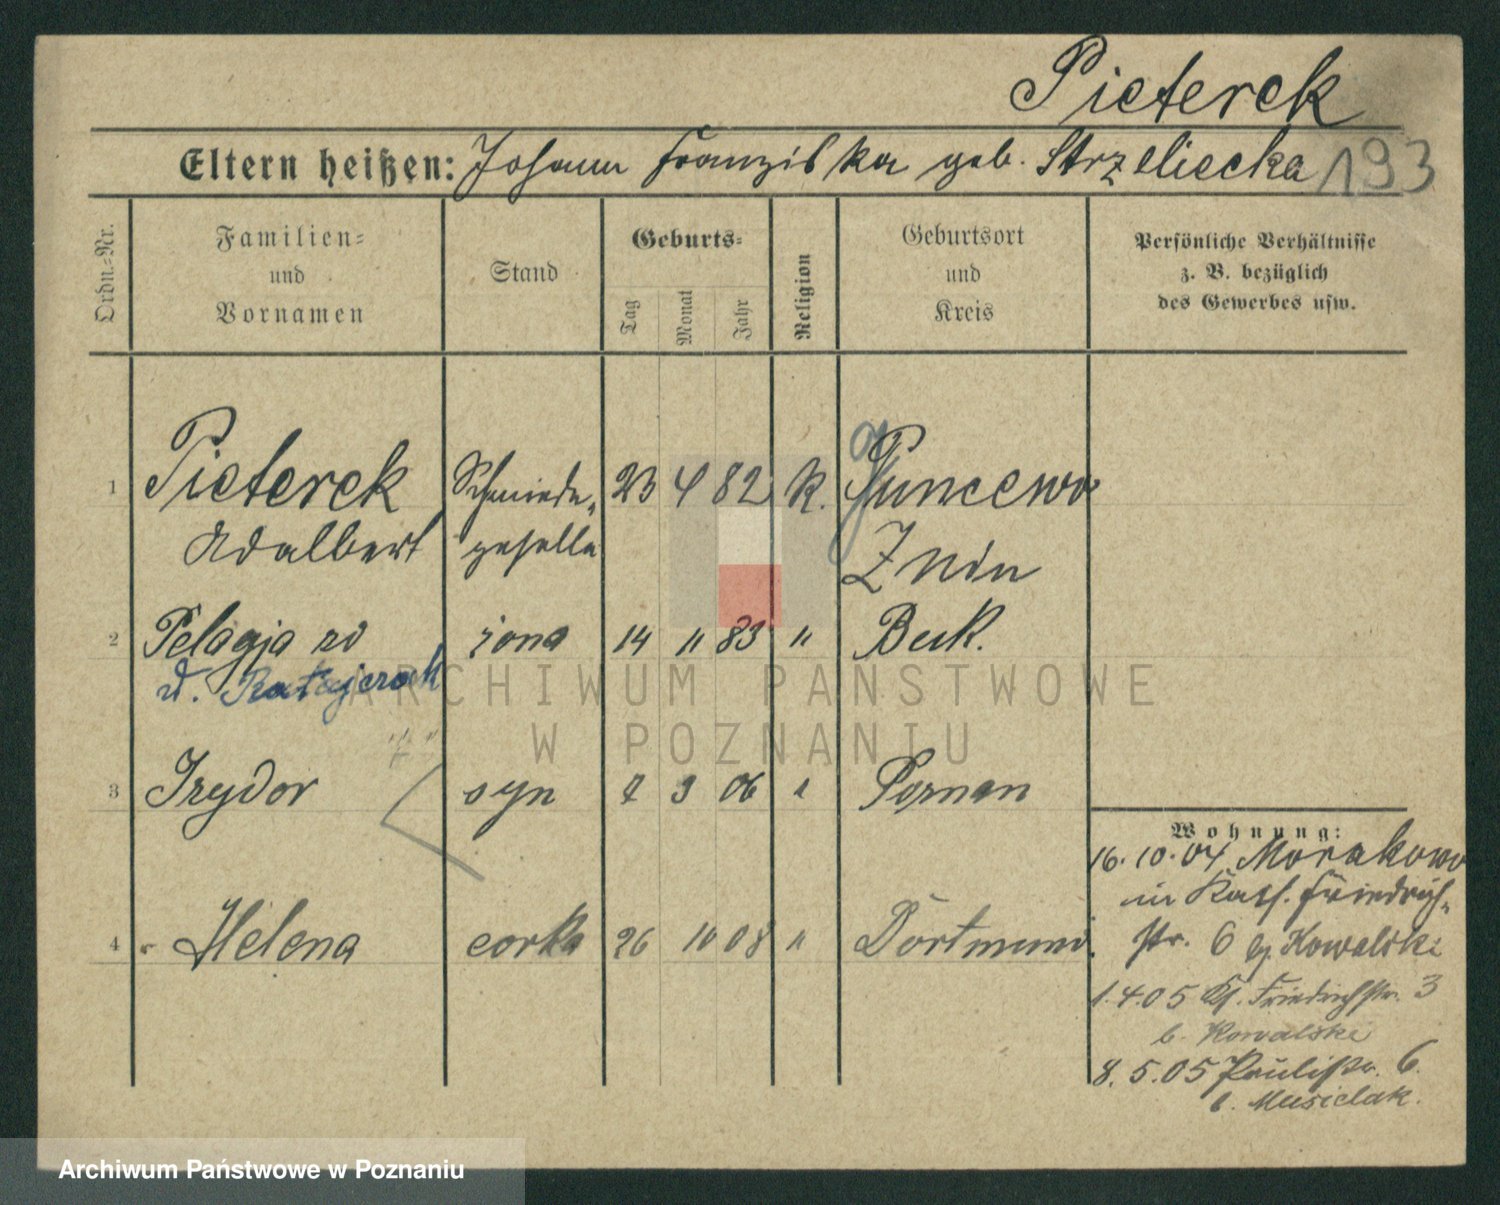 Pieterek
Eltern heißen: Johann Franziska geb. Strzeliecka 193
Ordn.-Nr.
Familien-
und
Vornamen
Stand
Geburts-
Tag
Monat
Jahr
Religion
Geburtsort
und
Kreis
Persönliche Verhältnisse
z. B. bezüglich
des Gewerbes usw.
1 Pieterek Schmiede- 23 4 82 K.
Adalbert geselle Znin
2 Pelagja żona 14 " 83 " Buk.
Ratajczak
3 Izydor syn 3 06 Poznan
4 Helena corka 26 10 08 " Dortmund
Wohnung:
16.10.04 Morakowo
Friedrich-
str. 6 Kowalski
1.4.05 Friedrichstr. 3
b. Kowalski
8.5.05 Paulistr. 6
b. Musielak.
ARCHIWUM PAŃSTWOWE
W POZNANIU
Archiwum Państwowe w Poznaniu